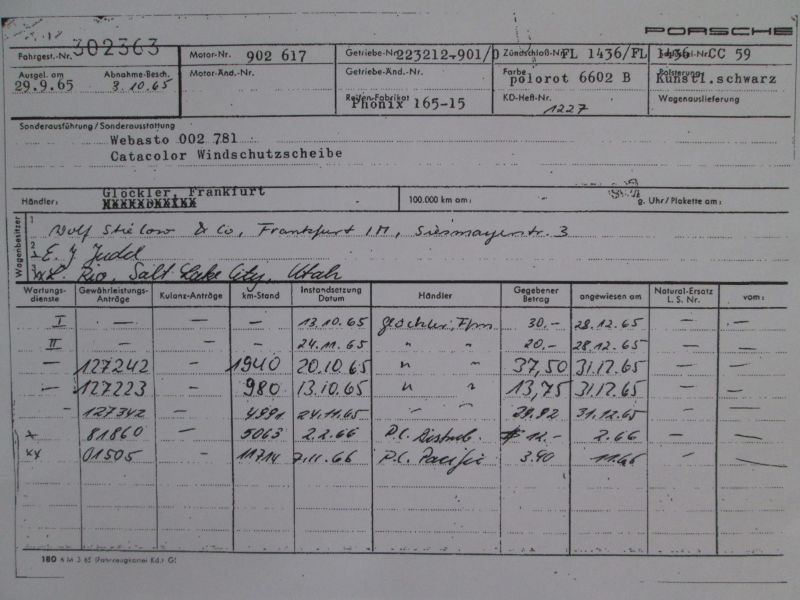 PORSCHE
Fahrgest.-Nr. 302363 Motor-Nr. 902 617 Getriebe-Nr. 223212-901/0 Zündschloß-Nr. FL 1436/FL 1436 CC 59
Ausgel. am 29.9.65 Abnahme-Besch. 3.10.65 Motor-Änd.-Nr. Getriebe-Änd.-Nr. Farbe polorot 6602 B Polsterung Kunstl.schwarz
Reifen-Fabrikat Phönix 165-15 KD-Heft-Nr. 1227 Wagenauslieferung
Sonderausführung/Sonderausstattung
Webasto 002 781
Catacolor Windschutzscheibe
Händler: Glöckler, Frankfurt 100.000 km am: g. Uhr/Plakette am:
Wagenbesitzer
1 Wolf Stielow & Co, Frankfurt /M, Siesmayerstr. 3
2 E. J Judd
3 Rio, Salt Lake City, Utah
Wartungsdienste Gewährleistungs-Anträge Kulanz-Anträge km-Stand Instandsetzung Datum Händler Gegebener Betrag angewiesen am Natural-Ersatz L. S. Nr. vom:
I — — — 13.10.65 Glöckler, Ffm 30.- 28.12.65 — —
II — — — 24.11.65 " " 20.- 28.12.65 — —
— 127242 — 1940 20.10.65 " " 37,50 31.12.65 — —
— 127223 — 980 13.10.65 " " 13,75 31.12.65 — —
- 127342 — 4991 24.11.65 " " 31.12.65 — —
x 81860 — 5063 2.2.66 P.C. Distrib. $ 12.- 2.66 — —
xx 01505 - 11714 7.11.66 P.C. Pacific 3.90 11.66 — —
180